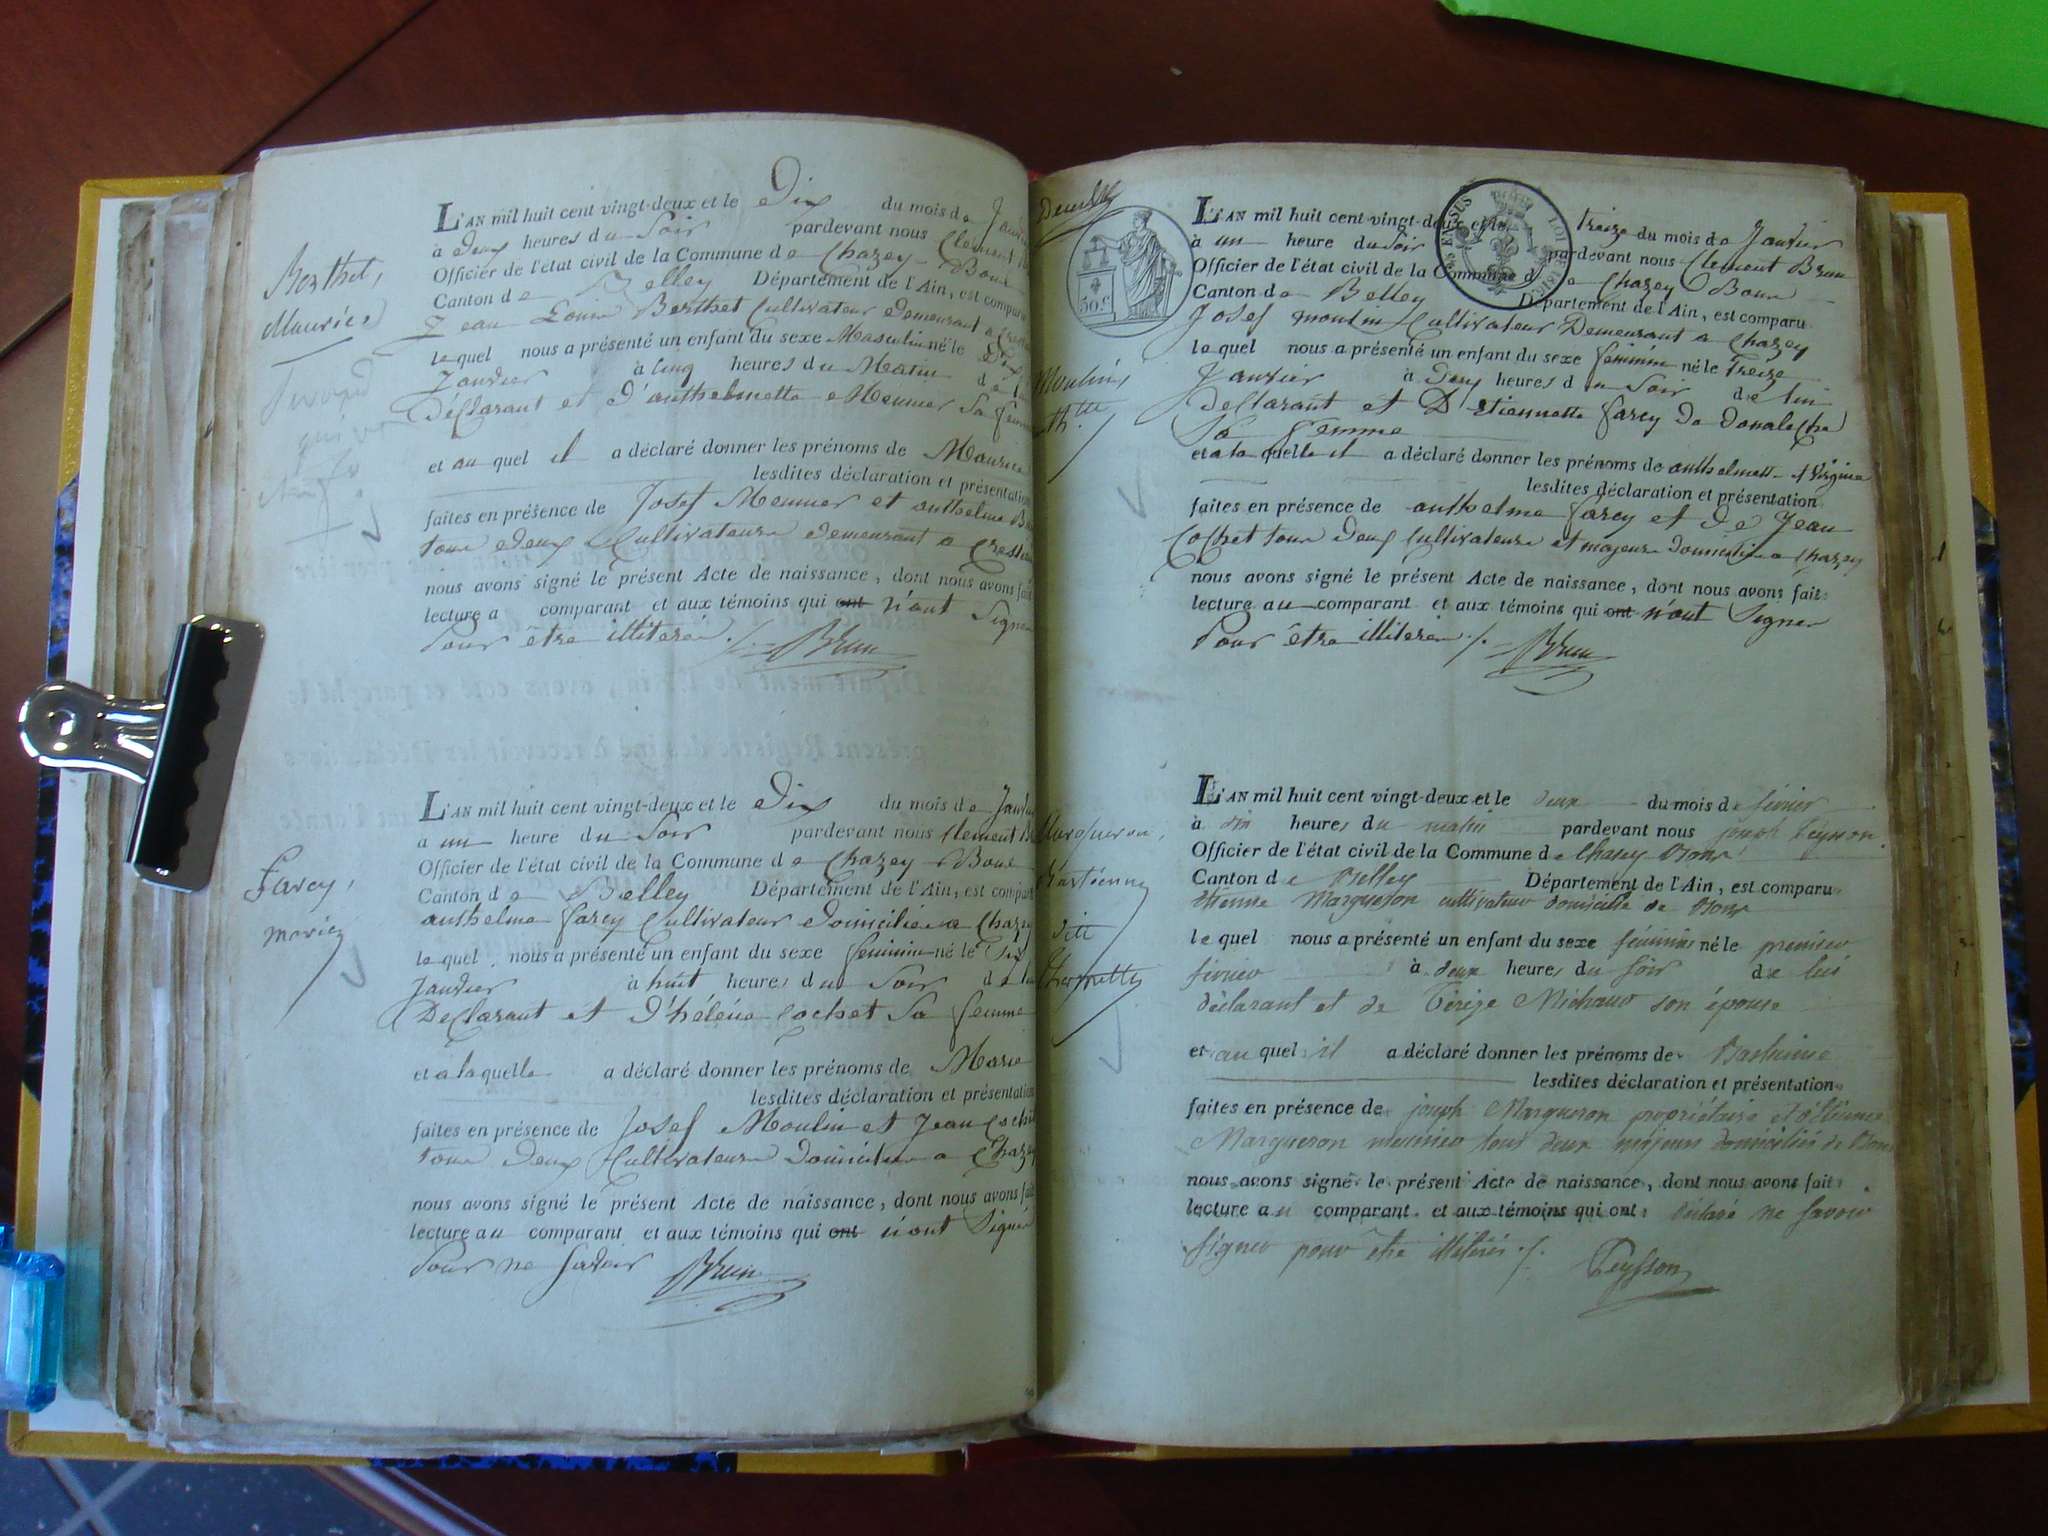 Berthet,
Maurice
L'AN mil huit cent vingt-deux et le Dix du mois de
à deux heures du Soir pardevant nous Clement
Officier de l'état civil de la Commune de Chazey Bons
Canton de Belley Département de l'Ain, est comparu
Jean Louis Berthet Cultivateur demeurant a
le quel nous a présenté un enfant du sexe Masculin né le Dix
Janvier à Cinq heures du Matin de
Déclarant et d'anthelmette Meunier Sa femme
et au quel il a déclaré donner les prénoms de Maurice
lesdites déclaration et présentation
faites en présence de Josef Meunier et anthelme
tous deux Cultivateurs demeurant a
nous avons signé le présent Acte de naissance, dont nous avons fait
lecture a comparant et aux témoins qui ont n'ont Signer
Pour être illiteré ./. Brun
Farcy,
marie
L'AN mil huit cent vingt-deux et le Dix du mois de
a un heure du Soir pardevant nous Clement
Officier de l'état civil de la Commune de Chazey Bons
Canton de Belley Département de l'Ain, est comparu
anthelme farcy Cultivateur domicilié a Chazey
le quel nous a présenté un enfant du sexe feminin né le Dix
Janvier à huit heures du Soir de lui
Declarant et d'héléne Cochet Sa femme
et a la quelle a déclaré donner les prénoms de Marie
lesdites déclaration et présentation
faites en présence de Josef Moulin et Jean Cochet
tous deux Cultivateurs domicilies a Chazey
nous avons signé le présent Acte de naissance, dont nous avons fait
lecture au comparant et aux témoins qui ont n'ont Signer
Pour ne Savoir Brun
50 c.
Moulin,
L'AN mil huit cent vingt-deux et le treize du mois de Janvier
à un heure du Soir pardevant nous Clement Brun
Officier de l'état civil de la Commune de Chazey Bons
Canton de Belley Département de l'Ain, est comparu
Josef moulin Cultivateur Demeurant a Chazey
le quel nous a présenté un enfant du sexe feminin né le Treize
Janvier à Deux heures du Soir de lui
Declarant et D'etiennette farcy
Sa femme
et a la quelle il a déclaré donner les prénoms de anthelmett et Virginie
lesdites déclaration et présentation
faites en présence de anthelme farcy et de Jean
Cochet tous deux Cultivateurs et majeurs domicilies a Chazey
nous avons signé le présent Acte de naissance, dont nous avons fait
lecture au comparant et aux témoins qui ont n'ont Signer
Pour être illiteré ./. Brun
Margueron,
ditt
L'AN mil huit cent vingt-deux et le deux du mois de février
à dix heures du matin pardevant nous joseph Peysson
Officier de l'état civil de la Commune de Chazey Bons
Canton de Belley Département de l'Ain, est comparu
étienne Margueron cultivateur domicilié de Bons
le quel nous a présenté un enfant du sexe féminin né le premier
février à deux heures du soir de lui
déclarant et de Térèze Michaud son épouse
et au quel il a déclaré donner les prénoms de
lesdites déclaration et présentation
faites en présence de joseph Margueron propriétaire et étienne
Margueron meunier tous deux majeurs domiciliés de Bons
nous avons signé le présent Acte de naissance, dont nous avons fait
lecture au comparant et aux témoins qui ont déclaré ne savoir
signer pour être illitérés ./. Peysson